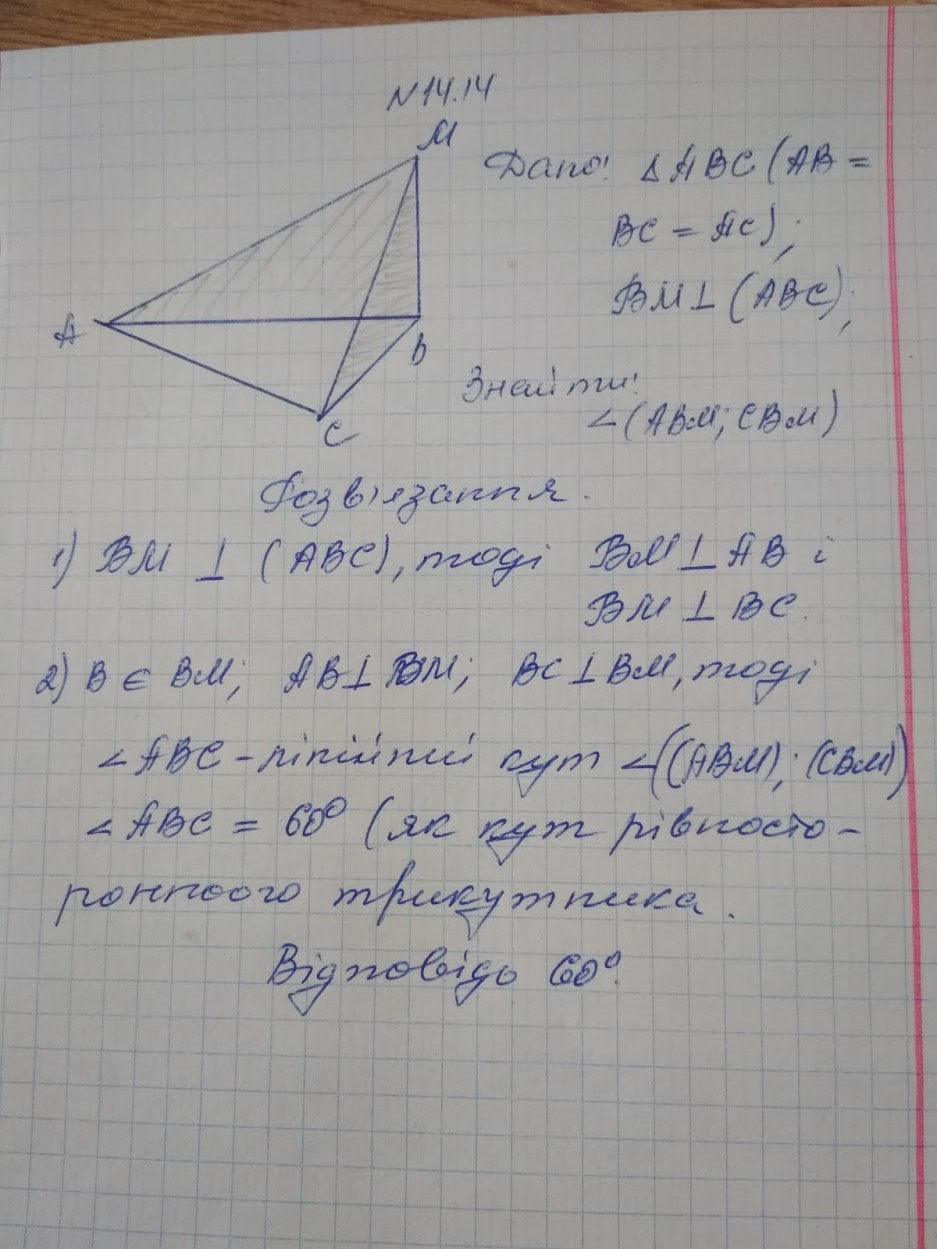 N14.14
M
Дано: △ABC (AB =
BC = AC);
BM⊥(ABC);
A
B
C
Знайти:
∠(ABM; CBM)
Розв'язання.
1) BM ⊥ (ABC), тоді BM⊥AB і
BM ⊥ BC.
2) B ∈ BM; AB⊥BM; BC⊥BM, тоді
∠ABC - лінійний кут ∠((ABM); (CBM))
∠ABC = 60° (як кут рівносто-
роннього трикутника.
Відповідь 60°.